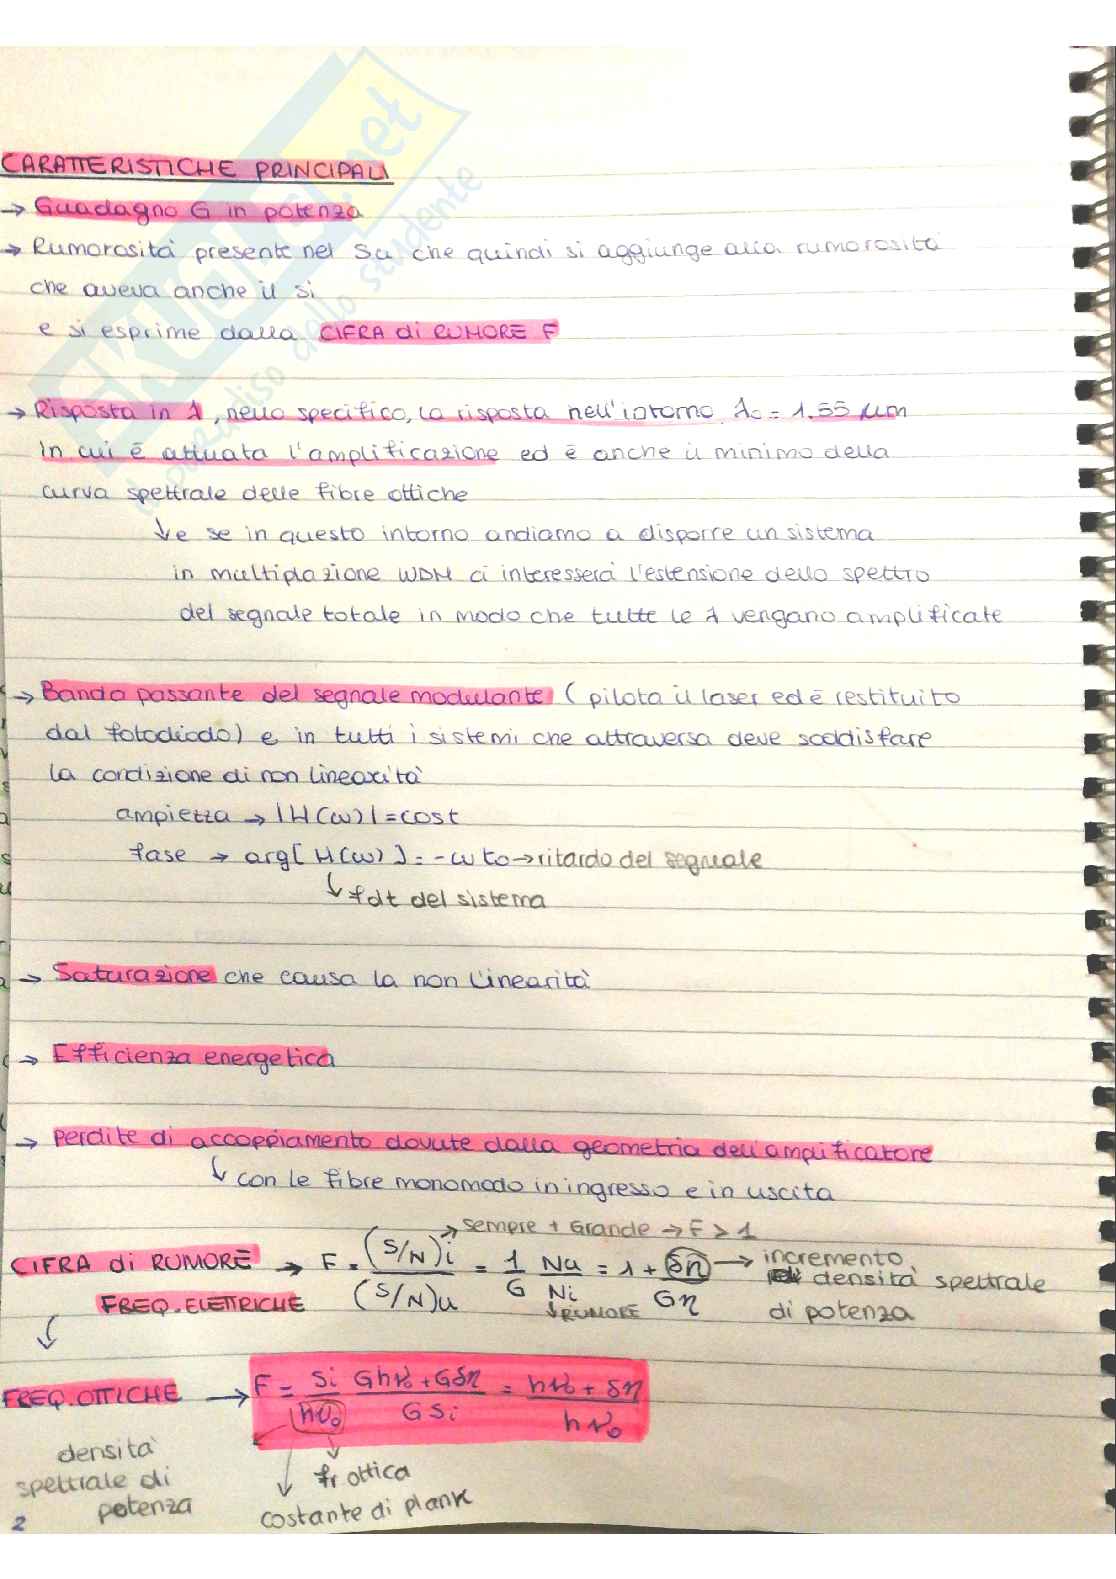 CARATTERISTICHE PRINCIPALI
→ Guadagno G in potenza
→ Rumorosità presente nel Su che quindi si aggiunge alla rumorosità
che aveva anche il si
e si esprime dalla CIFRA di RUMORE F
→ Risposta in λ, nello specifico, la risposta nell'intorno λo = 1.55 μm
in cui è attuata l'amplificazione ed è anche il minimo della
curva spettrale delle fibre ottiche
↓ e se in questo intorno andiamo a disporre un sistema
in multiplazione WDM ci interesserà l'estensione dello spettro
del segnale totale in modo che tutte le λ vengano amplificate
→ Banda passante del segnale modulante (pilota il laser ed è restituito
dal fotodiodo) e in tutti i sistemi che attraversa deve soddisfare
la condizione di non linearità
ampiezza → |H(ω)| = cost
fase → arg[H(ω)] = -ω to → ritardo del segnale
↓ fdt del sistema
→ Saturazione che causa la non linearità
→ Efficienza energetica
→ perdite di accoppiamento dovute dalla geometria dell'amplificatore
↓ con le fibre monomodo in ingresso e in uscita
→ sempre + Grande → F > 1
CIFRA di RUMORE → F = (S/N)i / (S/N)u = 1/G Nu/Ni = 1 + δη/Gη → incremento
densità spettrale
di potenza
FREQ. ELETTRICHE
↓ RUMORE
FREQ. OTTICHE → F = Si/hν₀ (Ghν₀ + Gδη)/GSi = (hν₀ + δη)/hν₀
densità
spettrale di
potenza
fr ottica
costante di plank
2
SKUOLA.net
il paradiso dello studente